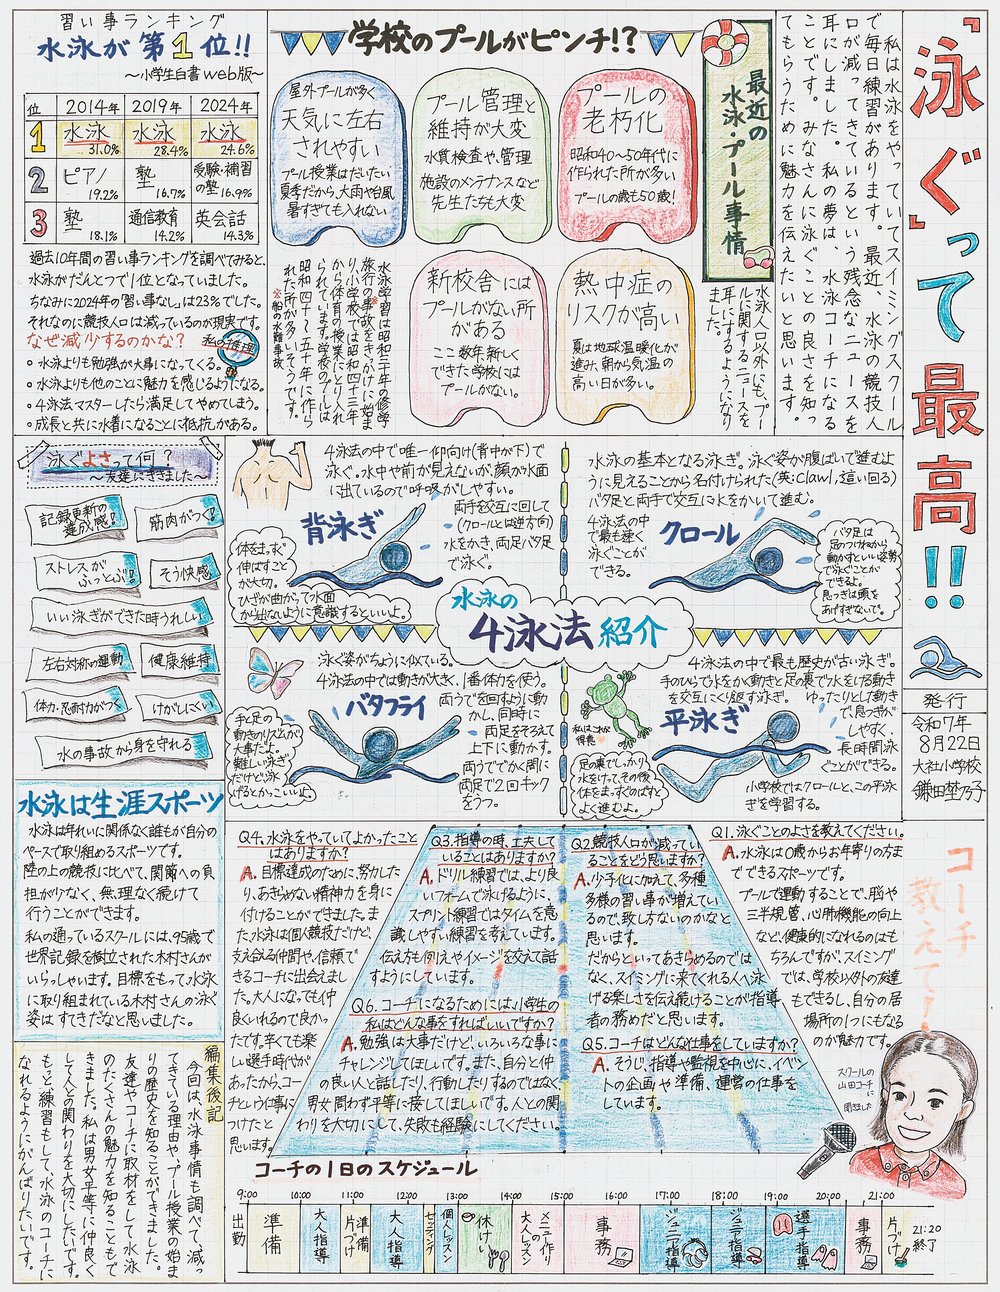 「泳ぐ」って最高!!
発行
令和7年
8月22日
大社小学校
私は水泳をやっていてスイミングスクール
で毎日練習があります。最近、水泳の競技人
口が減ってきているという残念なニュースを
耳にしました。私の夢は、水泳コーチになる
ことです。みなさんに泳ぐことの良さを知っ
てもらうために魅力を伝えたいと思います。
最近の
水泳・プール事情
水泳人口以外にも、プー
ルに関するニュースを
耳にするようになり
ました。
学校のプールがピンチ!?
屋外プールが多く
天気に左右
されやすい
プール授業はだいたい
夏季だから、大雨や台風
暑すぎても入れない
プール管理と
維持が大変
水質検査や、管理
施設のメンテナンスなど
先生たちも大変
プールの
老朽化
昭和40〜50年代に
作られた所が多い
プールの歳も50歳!
新校舎には
プールがない所
がある
ここ数年新しく
できた学校には
プールがない。
熱中症の
リスクが高い
夏は地球温暖化が
進み、朝から気温の
高い日が多い。
水泳学習は昭和三十年の修学
旅行の事故※をきっかけに始ま
り、小学校では昭和四十三年
から体育の授業にとり入れ
られています。学校のプールは
昭和四十〜五十年に作ら
れた所が多いそうです。
※船の水難事故
習い事ランキング
水泳が第1位!!
〜小学生白書web版〜
位 2014年 2019年 2024年
1 水泳 31.0% 水泳 28.4% 水泳 24.6%
2 ピアノ 19.2% 塾 16.7% 受験・補習の塾 16.9%
3 塾 18.1% 通信教育 14.2% 英会話 14.3%
過去10年間の習い事ランキングを調べてみると、
水泳がだんとつで1位となっていました。
ちなみに2024年の「習い事なし」は23%でした。
それなのに競技人口は減っているのが現実です。
なぜ減少するのかな?
私の推理
○水泳よりも勉強が大事になってくる。
○水泳よりも他のことに魅力を感じるようになる。
○4泳法マスターしたら満足してやめてしまう。
○成長と共に水着になることに抵抗がある。
泳ぐよさって何?
〜友達にききました〜
記録更新の
達成感!
筋肉がつく!
ストレスが
ふっとぶ!
そう快感
いい泳ぎができた時うれしい
左右対称の運動
健康維持
体力・忍耐力がつく
けがしにくい
水の事故から身を守れる
水泳の
4泳法紹介
背泳ぎ
4泳法の中で唯一仰向け(背中が下)で
泳ぐ。水中や前が見えないが、顔が水面
に出ているので呼吸がしやすい。
両手を交互に回して
(クロールとは逆方向)
水をかき、両足バタ足
で泳ぐ。
体をまっすぐ
伸ばすこと
が大切。
ひざが曲がって水面
から出ないように意識するといいよ。
クロール
水泳の基本となる泳ぎ。泳ぐ姿が腹ばいで進むよ
うに見えることから名付けられた(英:Clawl,這い回る)
バタ足と両手で交互に水をかいて進む。
4泳法の中
で最も速く
泳ぐことが
できる。
バタ足は
足のつけねから
動かすといい姿勢
で泳ぐことが
できるよ。
息つぎは頭を
あげすぎないで。
バタフライ
泳ぐ姿がちょうに似ている。
4泳法の中では動きが大きく、1番体力を使う。
両うでを回すように動
かし、同時に
両足をそろえて
上下に動かす。
両うででかく間に
両足で2回キック
をうつ。
手と足の
動きのリズムが
大事だよ。
難しい泳ぎ
だけど、泳
げるとかっこいいよ。
平泳ぎ
4泳法の中で最も歴史が古い泳ぎ。
手のひらで水をかく動きと足の裏で水をける動き
を交互にくり返す泳ぎ。
ゆったりとした動き
で、息つぎが
しやすく、
長時間泳
ぐことができる。
小学校ではクロールと、この平泳
ぎを学習する。
私はこれが
得意
足の裏でしっかり
水をけって、その後
体をまっすぐのばすと
よく進むよ。
水泳は生涯スポーツ
水泳は年れいに関係なく誰もが自分の
ペースで取り組めるスポーツです。
陸の上の競技に比べて、関節への負
担が少なく、無理なく続けて
行うことができます。
私の通っているスクールには、95歳で
世界記録を樹立された木村さんが
いらっしゃいます。目標をもって水泳
に取り組まれている木村さんの泳ぐ
姿はすてきだなと思いました。
コーチ
教えて!
Q1.泳ぐことのよさを教えてください。
A.水泳は0歳からお年寄りの方ま
でできるスポーツです。
プールで運動することで、脳や
三半規管、心肺機能の向上
など、健康的になれるのはも
ちろんですが、スイミング
では、学校以外の友達
もできるし、自分の居
場所の1つにもなる
のが魅力です。
Q2.競技人口が減ってい
ることをどう思いますか?
A.少子化に加えて、多種
多様の習い事が増えてい
るので、致し方ないのかなと
思います。
だからといってあきらめるのでは
なく、スイミングに来てくれる人へ泳
げる楽しさを伝え続けることが指導
者の務めだと思います。
Q3.指導の時、工夫して
いることはありますか?
A.ドリル練習では、より良
いフォームで泳げるように、
スプリント練習ではタイムを意
識しやすい練習を考えています。
伝え方も例えやイメージを交えて話
すようにしています。
Q4.水泳をやっていてよかったこと
はありますか?
A.目標達成のために努力した
り、あきらめない精神力を身に
付けることができました。ま
た、水泳は個人競技だけど、
支え合える仲間や、信頼で
きるコーチに出会えまし
た。大人になっても仲
良くいれるので良かっ
たです。辛くても楽し
い選手時代が
あったから、コー
チという仕事に
つけたと
思います。
Q5.コーチはどんな仕事をしていますか?
A.そうじ、指導や監視を中心に、イベン
トの企画や準備、運営の仕事を
しています。
Q6.コーチになるためには小学生の
私はどんな事をすればいいですか?
A.勉強は大事だけど、いろいろな事に
チャレンジしてほしいです。また、自分と仲
の良い人と話したり、行動したりするのではなく
男女問わず平等に接してほしいです。人との関
わりを大切にして、失敗も経験にしてください。
スクールの
山田コーチ
に
聞きました
編集後記
今回は、水泳事情も調べて、減っ
てきている理由や、プール授業の始ま
りの歴史を知ることができました。
友達やコーチに取材をして水泳
のたくさんの魅力を知ることもで
きました。私は男女平等に仲良く
して人との関わりを大切にしたいです。
もっと練習もして、水泳のコーチに
なれるようにがんばりたいです。
コーチの1日のスケジュール
9:00 10:00 11:00 12:00 13:00 14:00 15:00 16:00 17:00 18:00 19:00 20:00 21:00
出勤
準備
大人指導
片づけ
準備
大人指導
セッティング
個人レッスン
休けい
大人レッスン
メニュー作り
の
事務
ジュニア指導
ジュニア指導
選手指導
事務
片づけ
21:20
終了